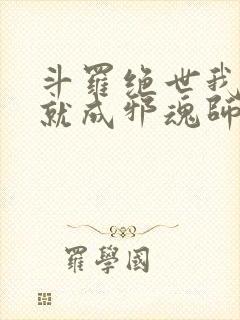 斗羅絶世我
就成邪魂師
羅學國